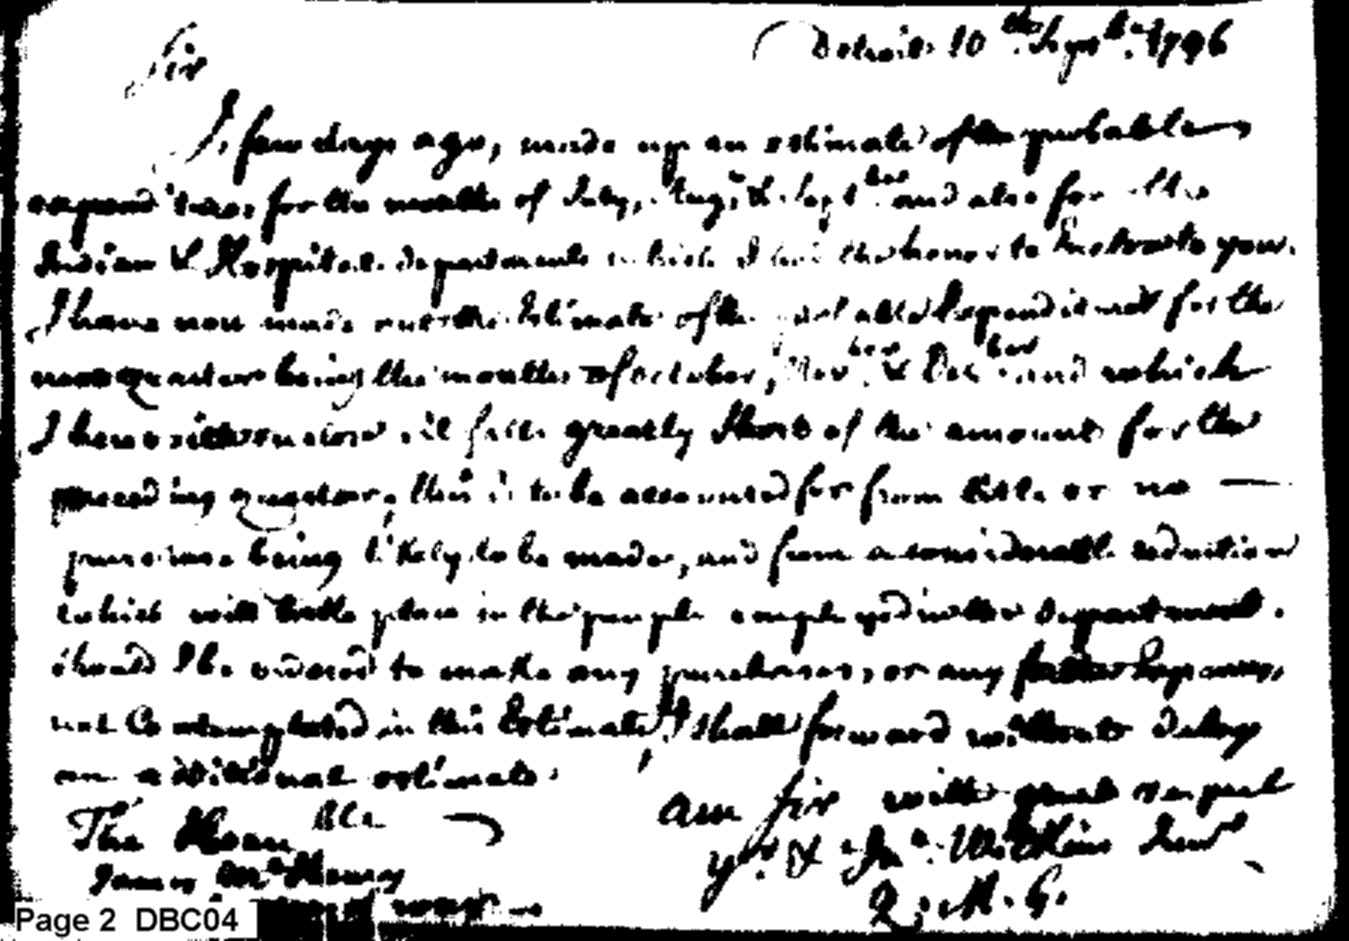 Detroit 10th. Septbr. 1796
Sir
I, few days ago, made up an estimate of the probable
expenditures, for the months of July, Augt. & Septber and also for the
Indian & Hospital departments which I had the honor to Instrate you.
I have now made out the Estimate of the probable Expenditures for the
next quarter being the months of October, Novber. & Decber and which
I herewith enclose. it falls greatly Short of the amount for the
preceeding quarter, this is to be accounted for from little or no
purchases being likely to be made, and from a considerable reduction
which will take place in the people employed in the department.
should I be ordered to make any purchases, or any further Expences,
not Contemplated in this Estimate, I shall forward without delay
an additional estimate.
am Sir with great respect
The Honble
yr. & Jno. Wilkins Junr
James McHenry
Q. M. G.
of war
Page 2 DBC04